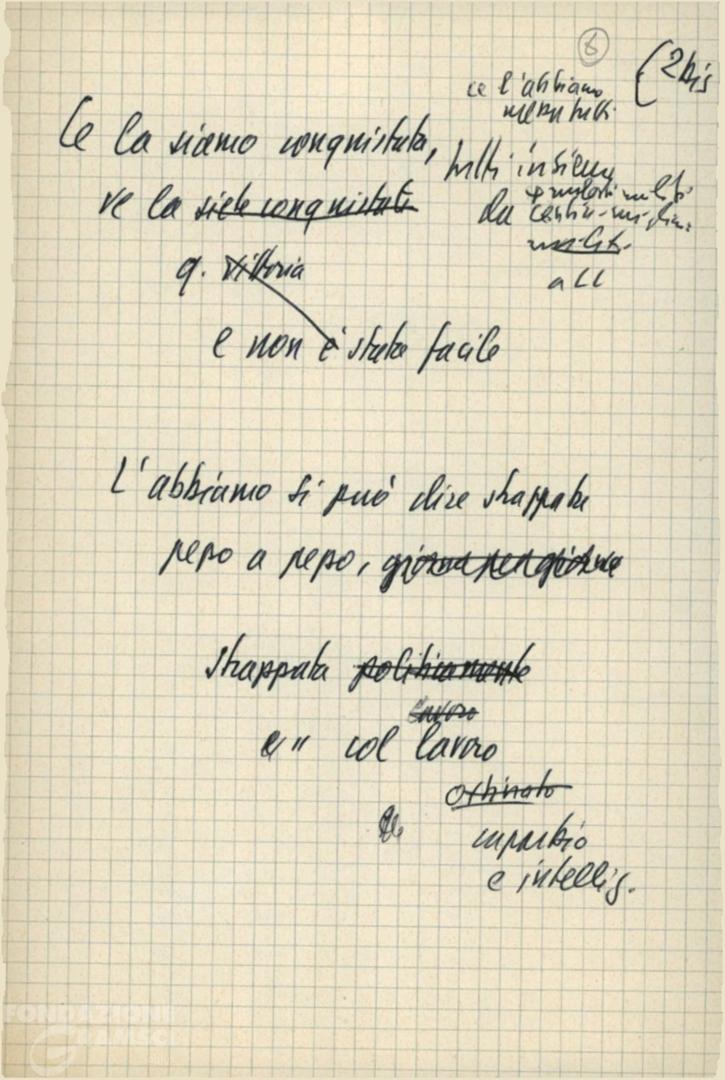 6
(2bis
ce l'abbiamo
messa tutti
Ce la siamo conquistata, tutti insieme
ve la siete conquistata
da
q. vittoria
all
e non è stata facile
L'abbiamo si può dire strappata
pezzo a pezzo, giorno per giorno
strappata politicamente
lavoro
e " col lavoro
ostinato
e intellig.
FONDAZIONE
GRAMSCI